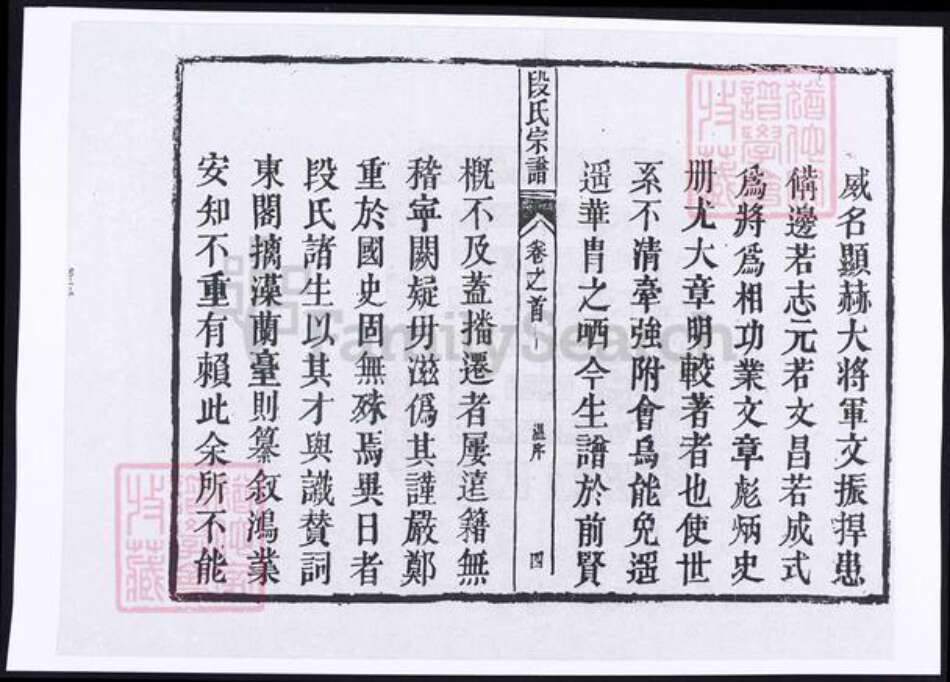 威名顯赫大將軍文振捍患
備邊若志元若文昌若成式
爲將爲相功業文章彪炳史
册尤大章明較著者也使世
系不清牽強附會烏能免遥
遥華胄之哂今生譜於前賢
段氏宗譜 卷之首 溫序 四
概不及蓋播遷者屢達籍無
稽寧闕疑毋滋僞其謹嚴鄭
重於國史固無殊焉異日者
段氏諸生以其才與識贊詞
東閣摛藻蘭臺則纂叙鴻業
安知不重有賴此余所不能
FamilySearch